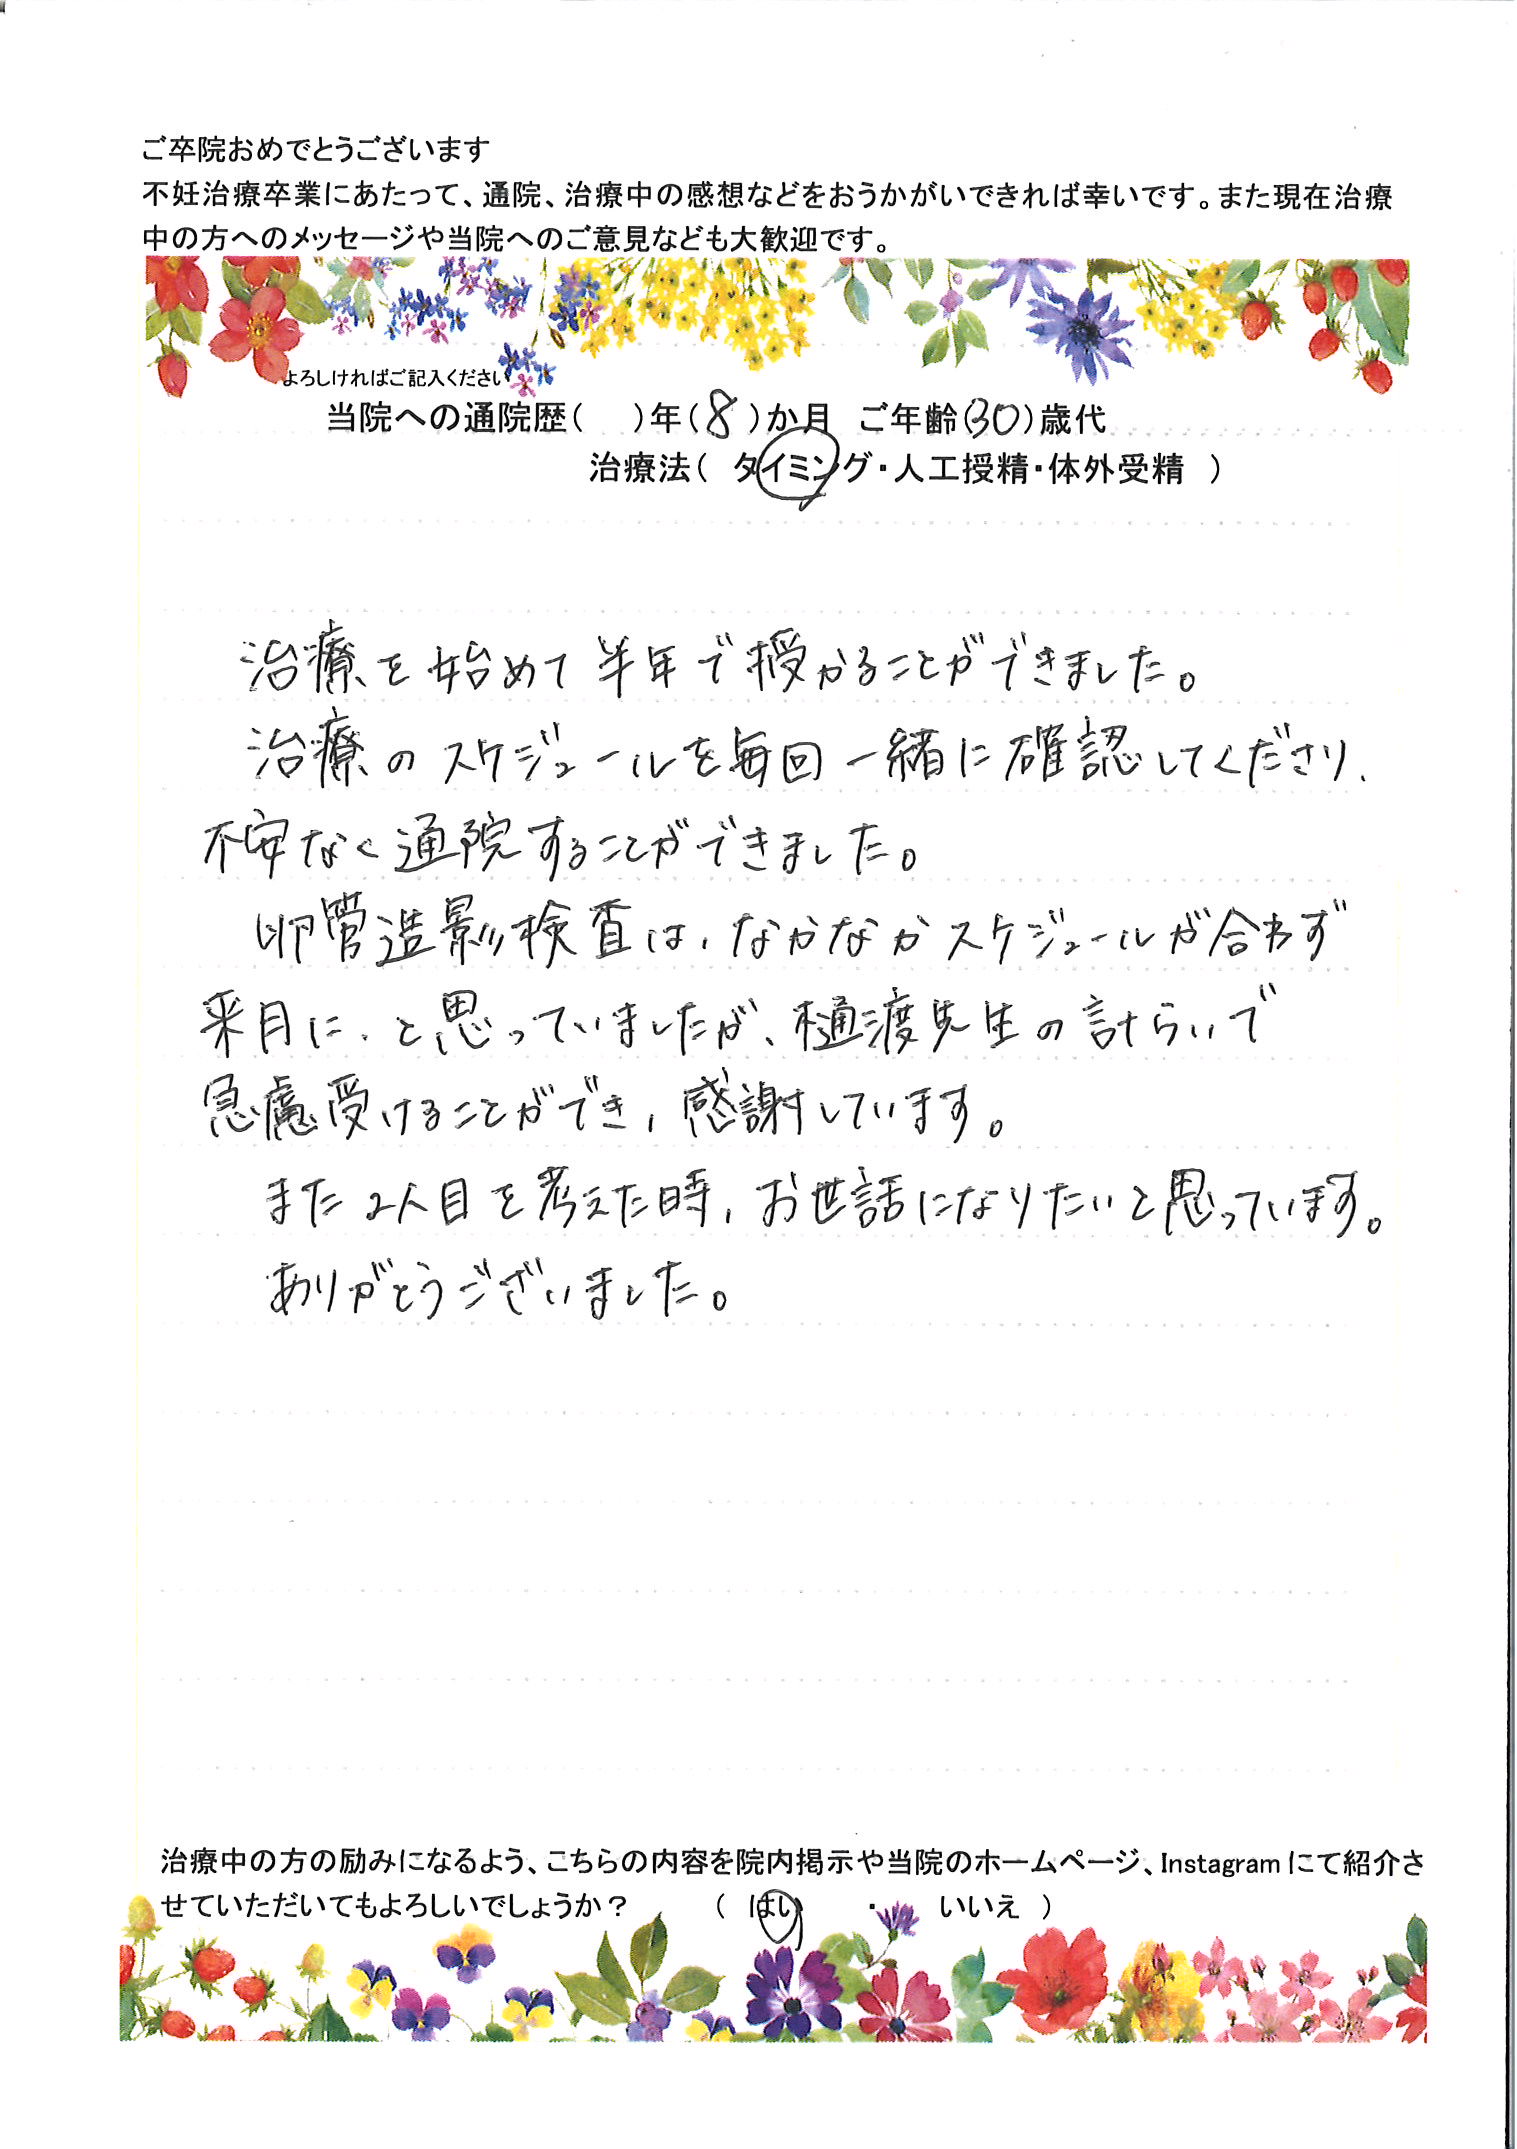 ご卒院おめでとうございます
不妊治療卒業にあたって、通院、治療中の感想などをおうかがいできれば幸いです。また現在治療
中の方へのメッセージや当院へのご意見なども大歓迎です。
よろしければご記入ください
当院への通院歴( )年(8)か月 ご年齢(30)歳代
治療法( タイミング・人工授精・体外受精 )
治療を始めて半年で授かることができました。
治療のスケジュールを毎回一緒に確認してくださり、
不安なく通院することができました。
卵管造影検査は、なかなかスケジュールが合わず
来月に、と思っていましたが、樋渡先生の計らいで
急慮受けることができ、感謝しています。
また2人目を考えた時、お世話になりたいと思っています。
ありがとうございました。
治療中の方の励みになるよう、こちらの内容を院内掲示や当院のホームページ、Instagramにて紹介さ
せていただいてもよろしいでしょうか？ ( はい ・ いいえ )